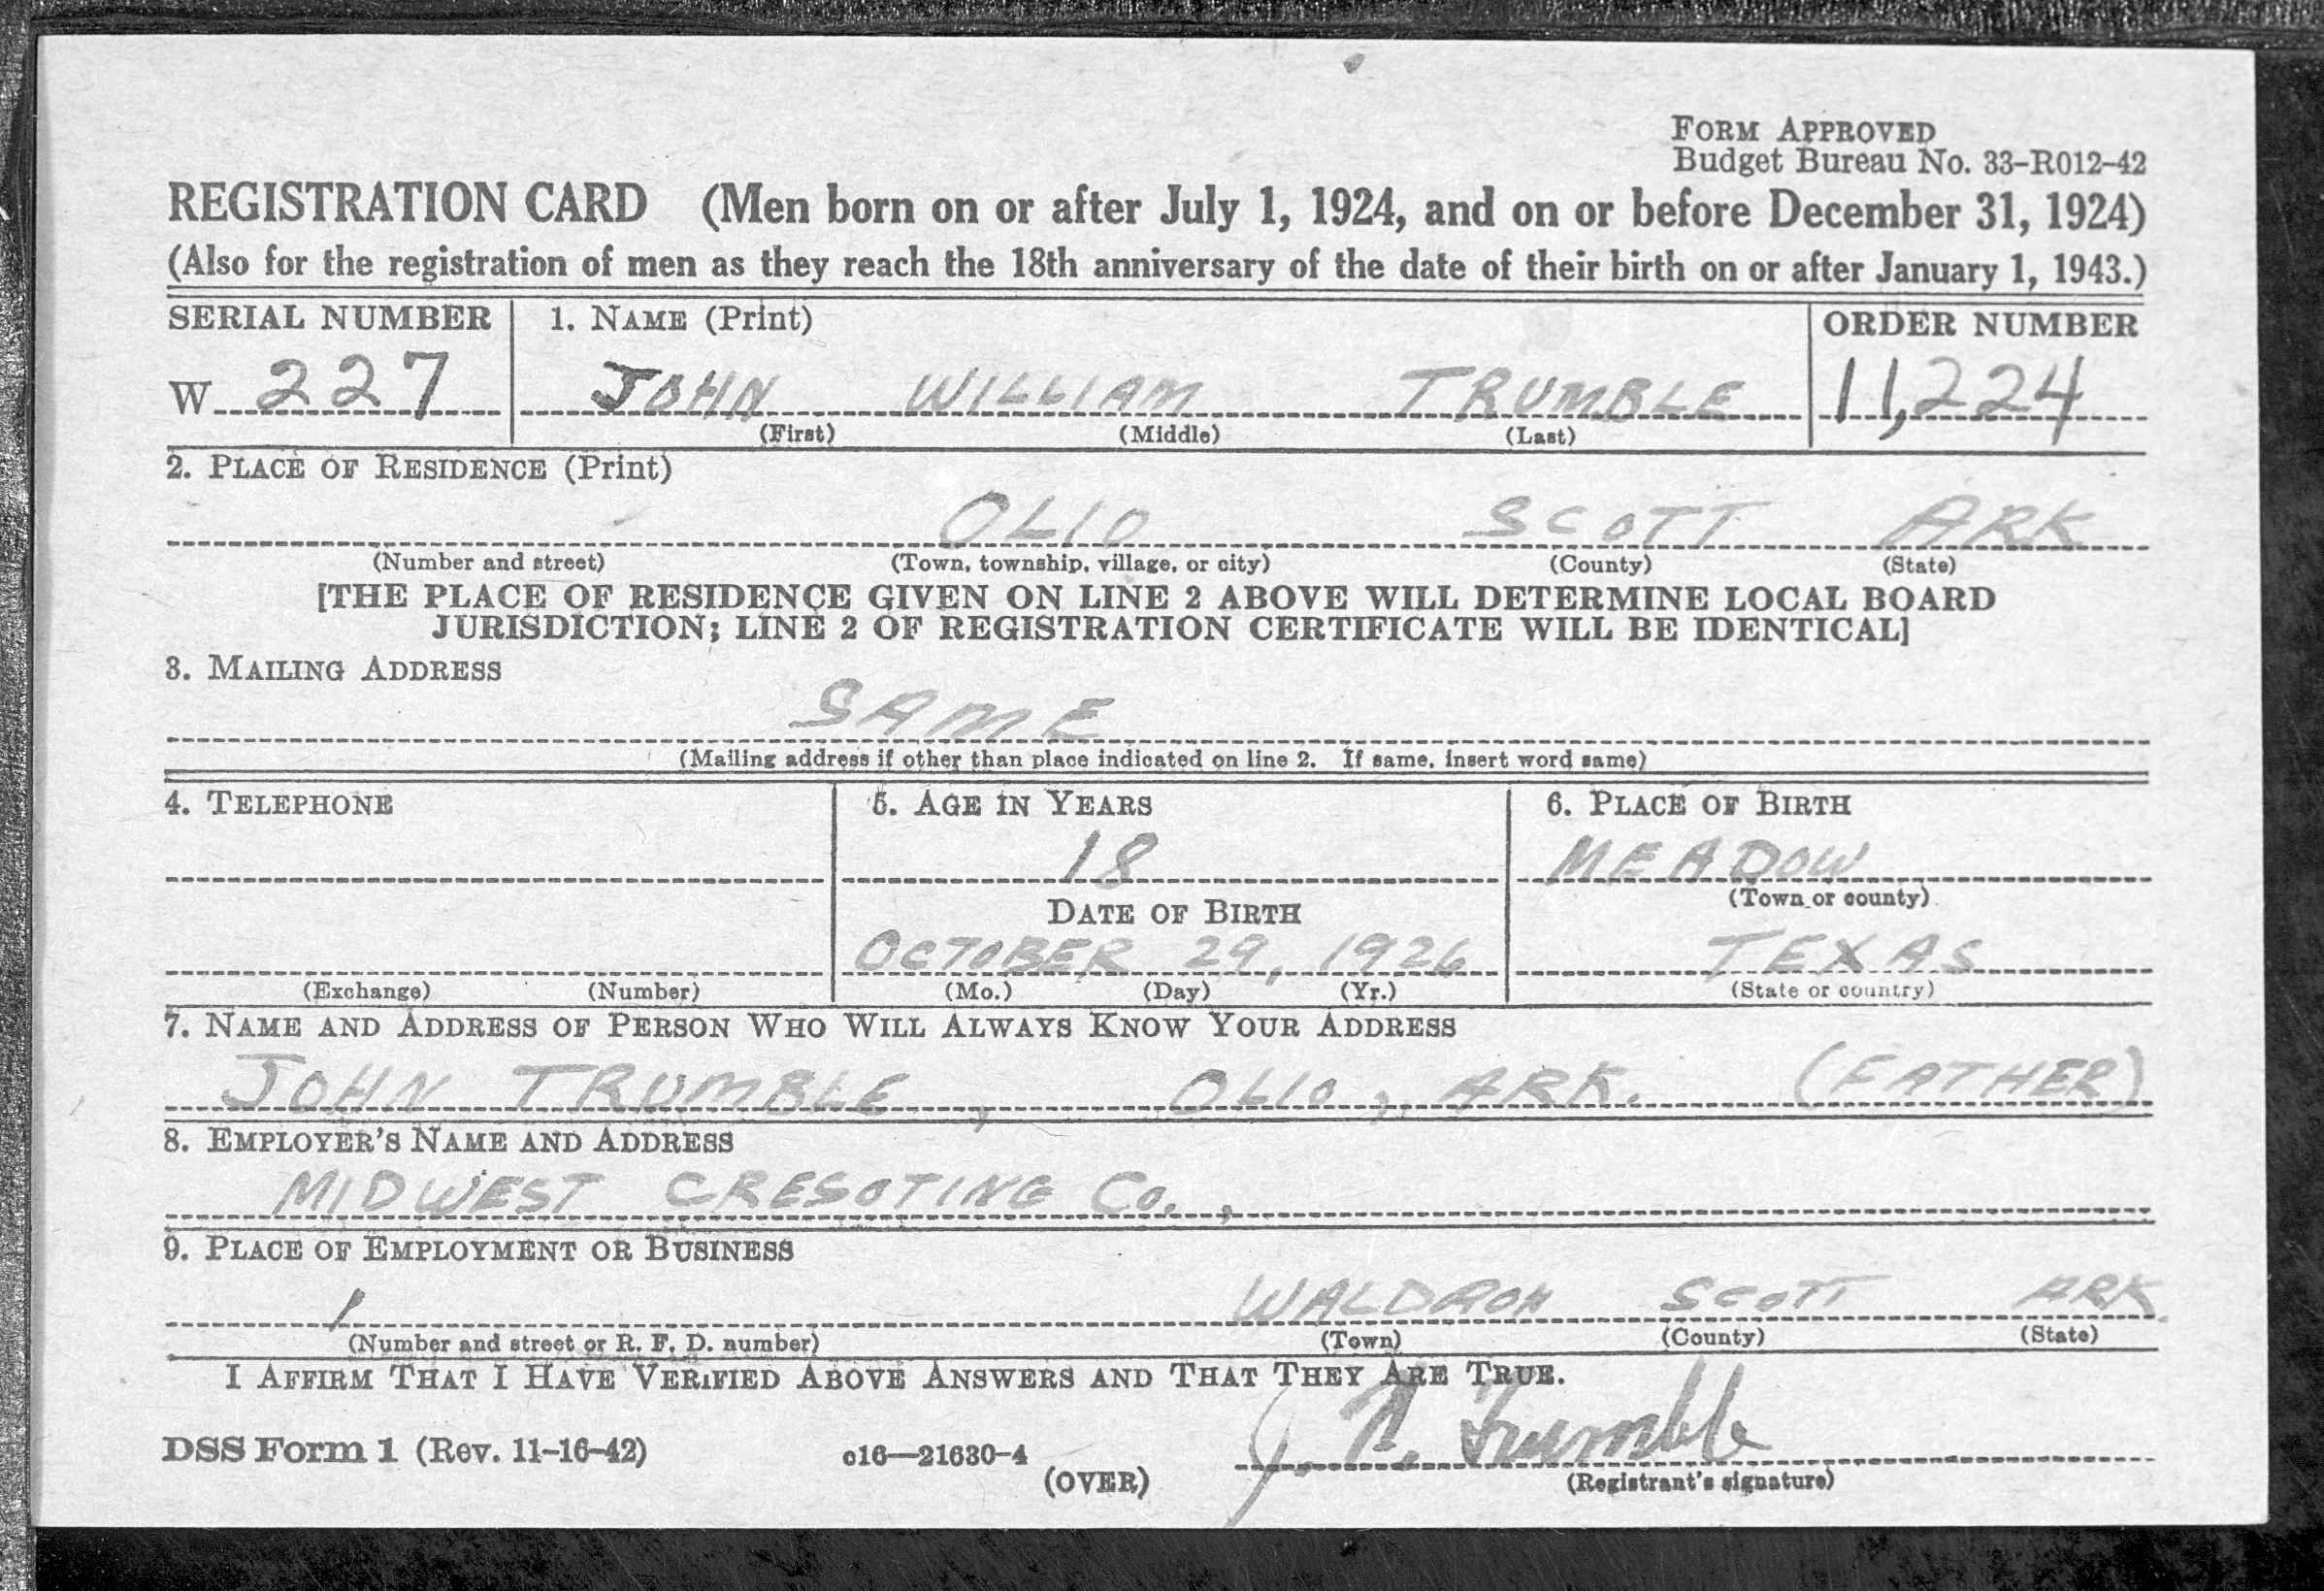 FORM APPROVED
Budget Bureau No. 33-R012-42
REGISTRATION CARD (Men born on or after July 1, 1924, and on or before December 31, 1924)
(Also for the registration of men as they reach the 18th anniversary of the date of their birth on or after January 1, 1943.)
SERIAL NUMBER 1. NAME (Print) ORDER NUMBER
W 227 JOHN WILLIAM TRUMBLE 11,224
(First) (Middle) (Last)
2. PLACE OF RESIDENCE (Print)
OLIO SCOTT ARK
(Number and street) (Town, township, village, or city) (County) (State)
[THE PLACE OF RESIDENCE GIVEN ON LINE 2 ABOVE WILL DETERMINE LOCAL BOARD
JURISDICTION; LINE 2 OF REGISTRATION CERTIFICATE WILL BE IDENTICAL]
3. MAILING ADDRESS
SAME
(Mailing address if other than place indicated on line 2. If same, insert word same)
4. TELEPHONE 5. AGE IN YEARS 6. PLACE OF BIRTH
18 MEADOW
(Town or county)
DATE OF BIRTH
OCTOBER 29, 1926 TEXAS
(Exchange) (Number) (Mo.) (Day) (Yr.) (State or country)
7. NAME AND ADDRESS OF PERSON WHO WILL ALWAYS KNOW YOUR ADDRESS
JOHN TRUMBLE, OLIO, ARK. (FATHER)
8. EMPLOYER'S NAME AND ADDRESS
MIDWEST CRESOTING Co.,
9. PLACE OF EMPLOYMENT OR BUSINESS
WALDRON SCOTT ARK
(Number and street or R. F. D. number) (Town) (County) (State)
I AFFIRM THAT I HAVE VERIFIED ABOVE ANSWERS AND THAT THEY ARE TRUE.
DSS Form 1 (Rev. 11-16-42) c16—21630-4 (OVER) J. W. Trumble
(Registrant's signature)